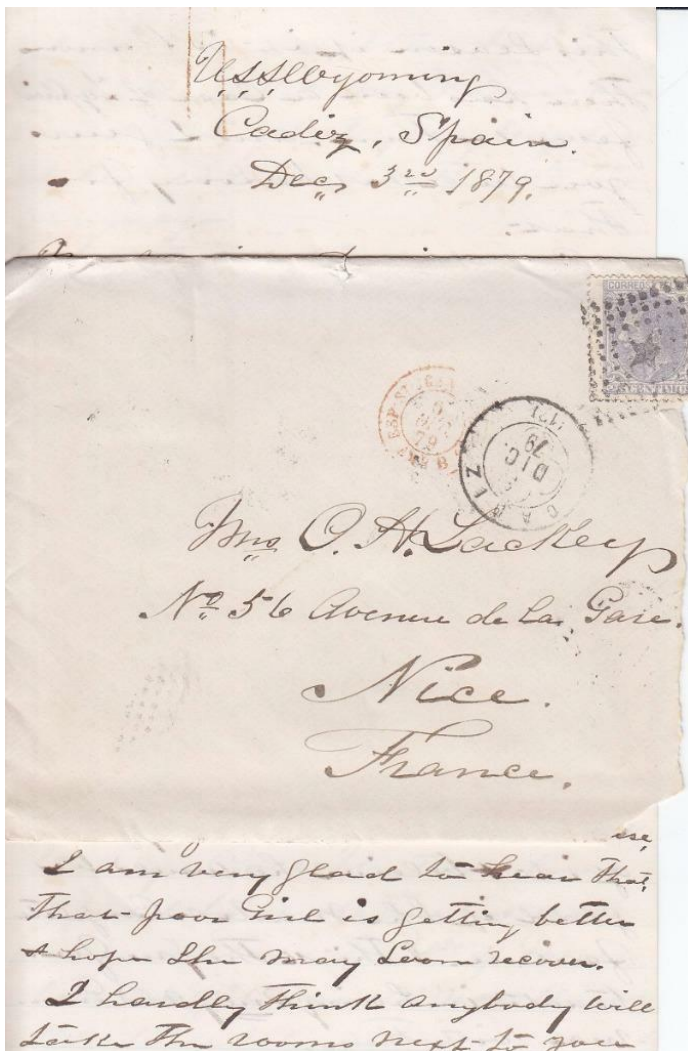 U.S.S. Wyoming
Cadiz, Spain.
Dec. 3rd 1879.
CORREOS
CADIZ
DIC.
79
Mrs O. H. Lackey
No 56 Avenue de la Gare.
Nice.
France.
I am very glad to hear that
that poor girl is getting better
& hope she may soon recover.
I hardly think anybody will
take the rooms next to you